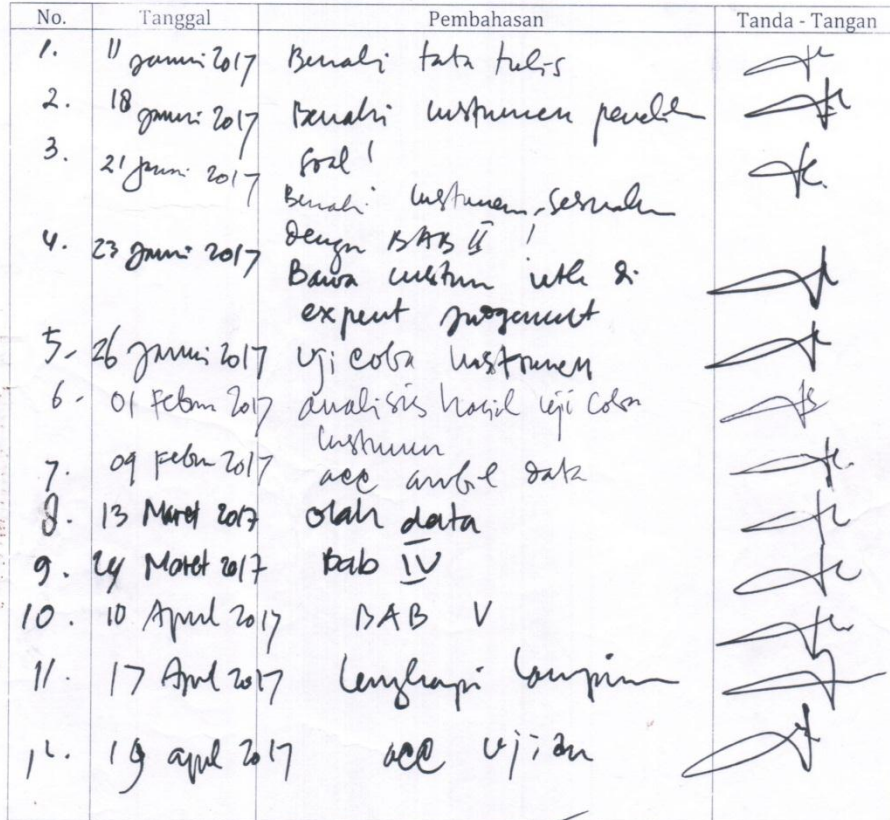 No. Tanggal Pembahasan Tanda - Tangan
1. 11 Januari 2017 Benahi tata tulis
2. 18 Januari 2017 Benahi instrumen
3. 21 Januari 2017 Soal!
Benahi instrumen, sesuaikan
dengan BAB II !
4. 23 Januari 2017 Bawa instrumen utk di
expert judgement
5. 26 Januari 2017 Uji coba instrumen
6. 01 Febru 2017 analisis hasil uji coba
instrumen
7. 09 Febru 2017 acc ambil data
8. 13 Maret 2017 olah data
9. 24 Maret 2017 Bab IV
10. 10 April 2017 BAB V
11. 17 April 2017 Lengkapi lampiran
12. 19 april 2017 acc ujian